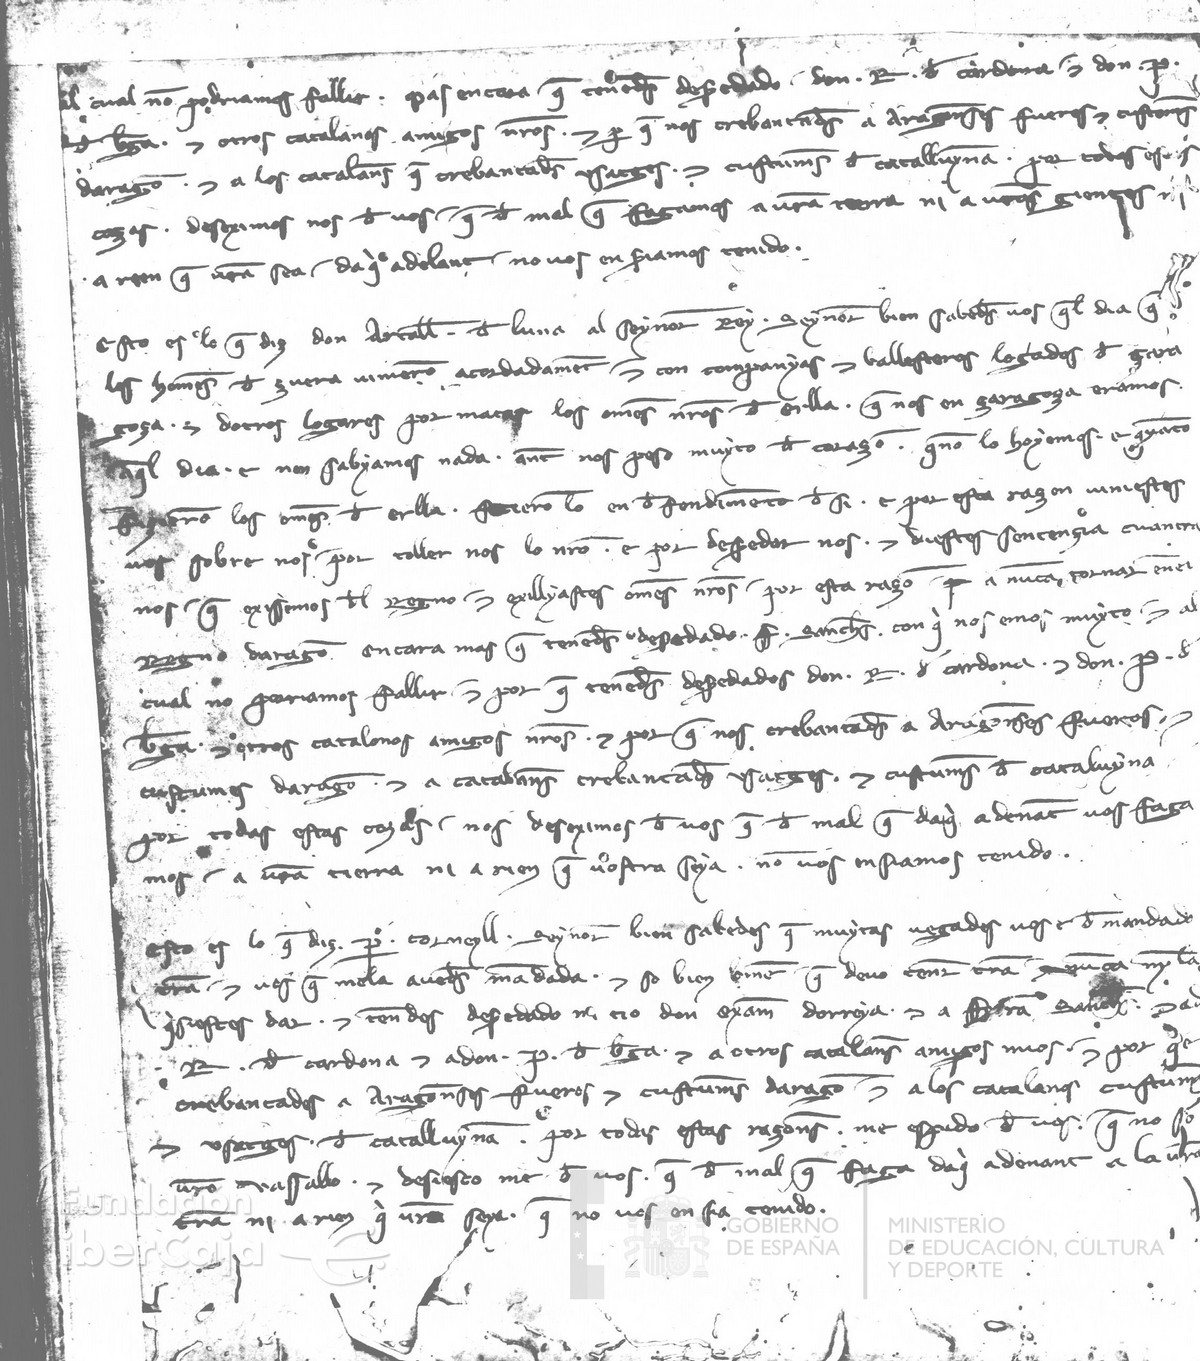 al cual nõ podriamos fallir. q̃ tenedes despedado don. R. d̃ cardona ⁊ don. P.
d̃ bga. ⁊ otros catalanos amigos nr̃os. ⁊ p q̃ nos crebantades a Aragonses fueros ⁊ custums
daragõ. ⁊ a los catalans q̃ crebantades usatges. ⁊ custums d̃ catalluyna. por todas estas
cozas. desexímos nos d̃ vos q̃ d̃ mal q̃ fagamos a vr̃a terra ni a vr̃as gientes ni
a ren q̃ vr̃a sea daq̃ adelant no vos en siamos tenido.
Esto es lo q̃ diz don Artall. d̃ luna al seynor Rey. Seynor bien sabedes vos q̃l dia q̃
los homes d̃ zuera vinierõ acordadament ⁊ con companyas ⁊ ballesteros logados d̃ zara
goza. ⁊ dotros logares por matar los omes nr̃os d̃ erlla. q̃ nos en zaragoza eramos
aq̃l dia. e non sabyamos nada. ant nos peso muyto d̃ corazõ. q̃no lo hoyemos. e q̃nto
fizierõ los omes d̃ erlla. fizierõ lo en d̃fendimento d̃ si. e por esta razon viniestes
vos sobre nos por toller nos lo nr̃o. e por despedar nos. ⁊ diestes sentenzia cuantra
nos q̃ exissemos d̃l Regno ⁊ exillyastes omes nr̃os por esta razõ p a nũca tornar enel
Regno daragõ encara mas q̃ tenedes despedado. F. Sanchs. con q̃ nos emos muyto ⁊ al
cual nõ podriamos fallir ⁊ por q̃ tenedes despedados don. R. d̃ cardona. ⁊ don. P. d̃
bga. ⁊ otros catalonos amigos nr̃os. ⁊ por q̃ nos crebantades a Aragonses fueros. ⁊
custumes daragõ. ⁊ a catalans crebantades usatges. ⁊ custums d̃ cataluyna
por todas estas cozas nos deseximos d̃ vos q̃ d̃ mal q̃ daq̃ adenant vos faga
mos a vr̃a tierra ni a rien q̃ vostra seya. nõ vos ensiamos tenido.
Esto es lo q̃ diz. P̃. corneyll. Seynor bien sabedes q̃ muytas vegadas vos e d̃mandado
tr̃a ⁊ vos q̃ mela avedes mãdada. ⁊ so bien ome q̃ devo tenr tr̃a ⁊ nũca my la
q̃siestes dar. ⁊ tenedes despedado mi tio don exam dorreya. ⁊ a Ferrã Sanchs. ⁊ a
. R. d̃ cardona ⁊ adon. P. d̃ bga. ⁊ a otros catalans amigos mios. ⁊ por q̃
crebantades a Aragonses fueros ⁊ custums daragõ ⁊ a los catalans custums
⁊ usatges. d̃ catalluynã. por todas estas razons. me espido d̃ vos. q̃ no so
vr̃o vassallo. ⁊ desiesco me d̃ vos. q̃ d̃ mal q̃ faga daq̃ adenant a la vr̃a
tr̃a ni a rien q̃ vr̃a seya. q̃ no vos en sia tenido.
Fundación
iberCaja
GOBIERNO
DE ESPAÑA
MINISTERIO
DE EDUCACIÓN, CULTURA
Y DEPORTE